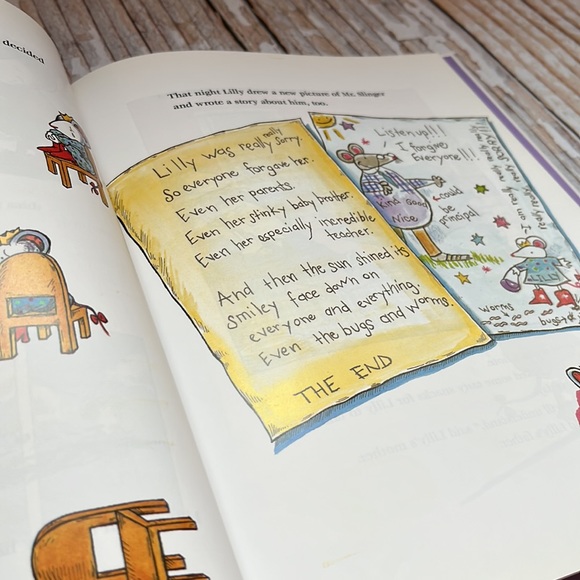 decided
That night Lilly drew a new picture of Mr. Slinger
and wrote a story about him, too.
Lilly was really really sorry.
So everyone forgave her.
Even her parents.
Even her stinky baby brother.
Even her especially incredible
teacher.
And then the sun shined its
smiley face down on
everyone and everything.
Even the bugs and worms.
THE END
Listen up!!!
I forgive
Everyone!!!
Kind Good
Nice
could
be
principal
worms
bugs